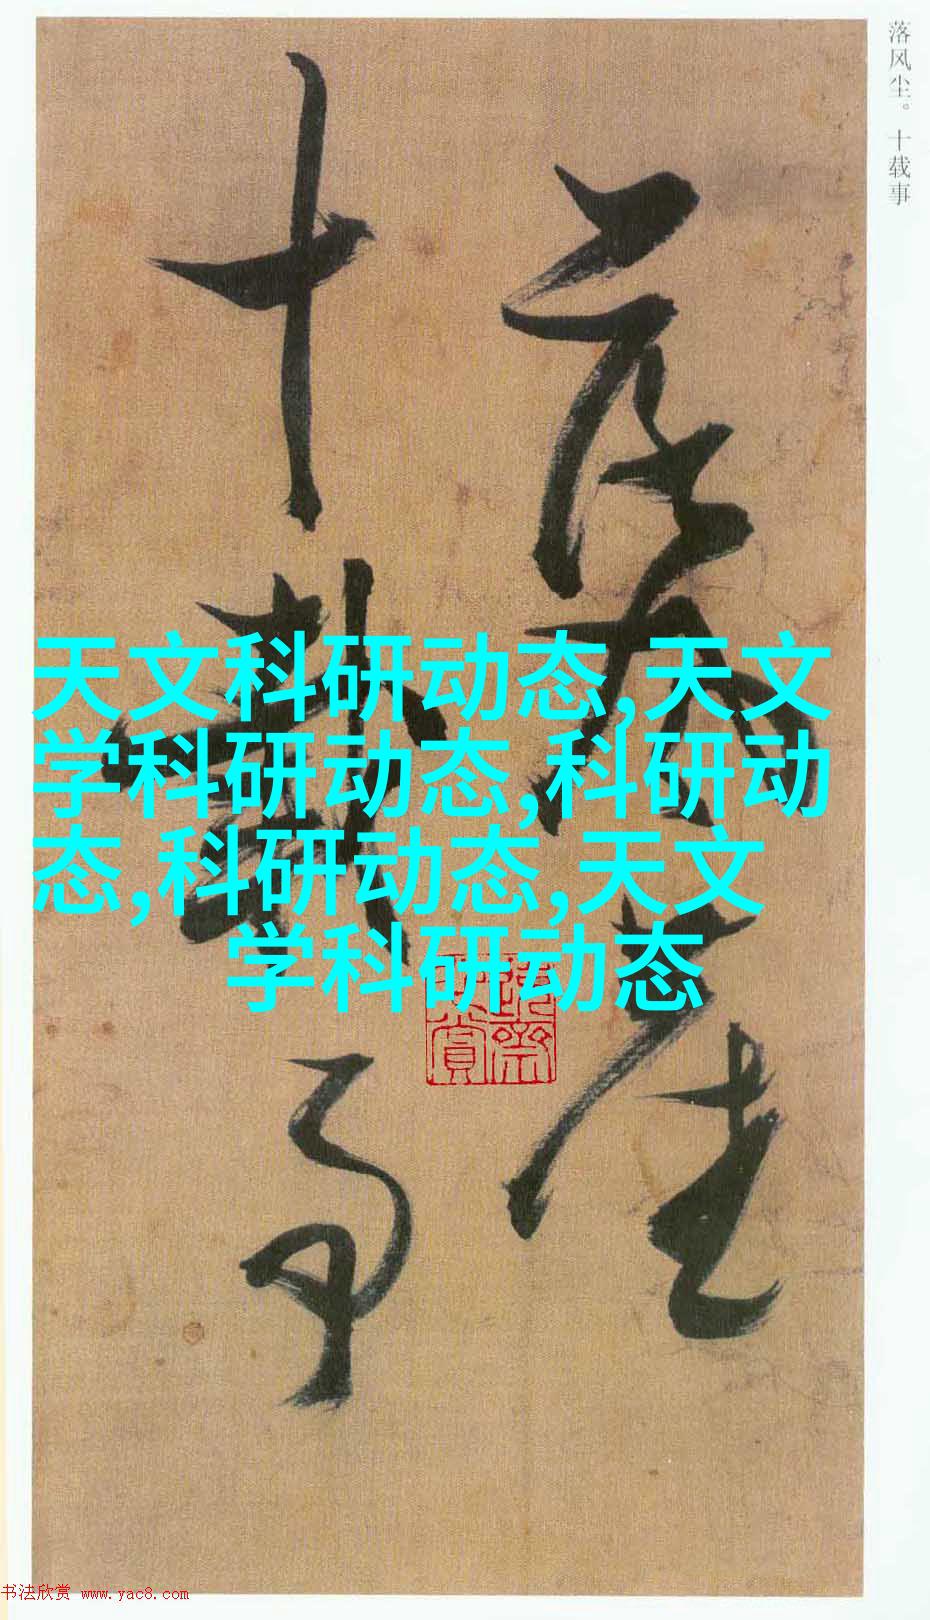 落风尘。十载事
落风尘
十载事
天文科研动态,天文
学科研动态,科研动
态,科研动态,天文
学科研动态
书法欣赏 www.yac8.com